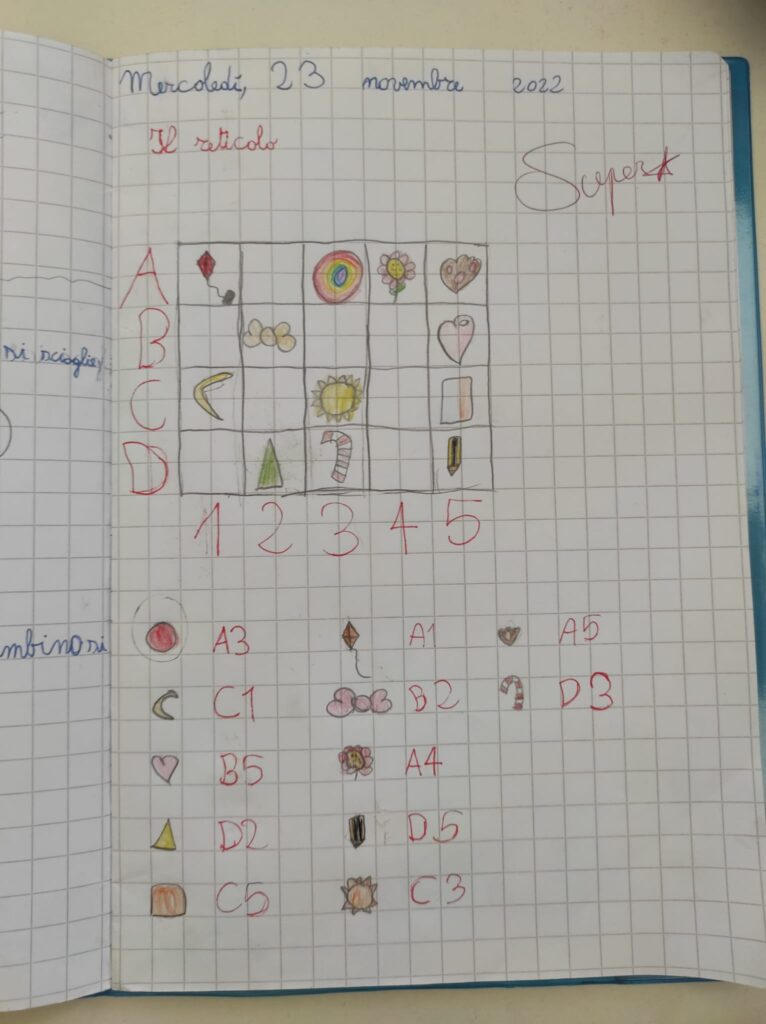 Mercoledì, 23 novembre 2022
Il reticolo
Super
A
B
si scioglie
C
D
1 2 3 4 5
mbinari
A3 A1 A5
C1 B2 D3
B5 A4
D2 D5
C5 C3